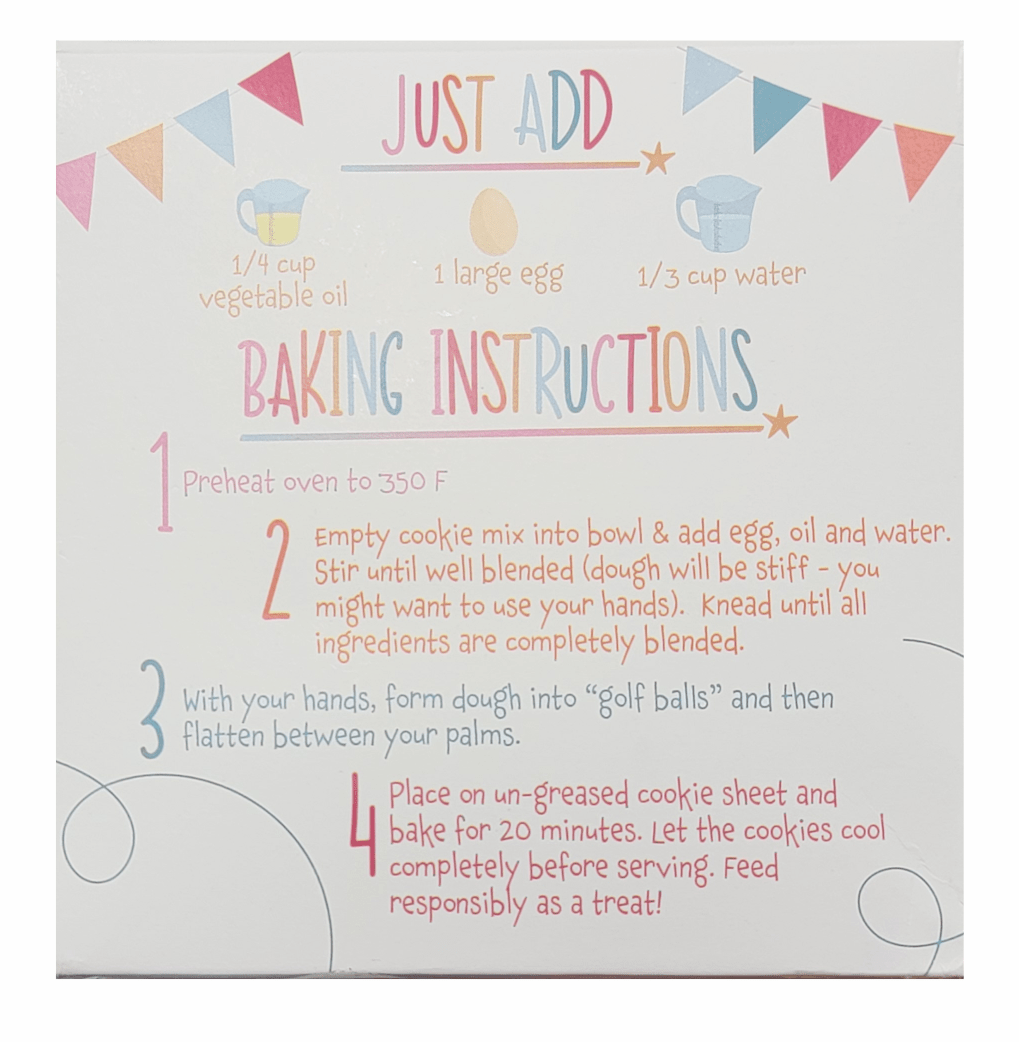 JUST ADD
1/4 cup
vegetable oil
1 large egg
1/3 cup water
BAKING INSTRUCTIONS
1 Preheat oven to 350 F
2 Empty cookie mix into bowl & add egg, oil and water.
Stir until well blended (dough will be stiff - you
might want to use your hands). Knead until all
ingredients are completely blended.
3 With your hands, form dough into “golf balls” and then
flatten between your palms.
4 Place on un-greased cookie sheet and
bake for 20 minutes. Let the cookies cool
completely before serving. Feed
responsibly as a treat!